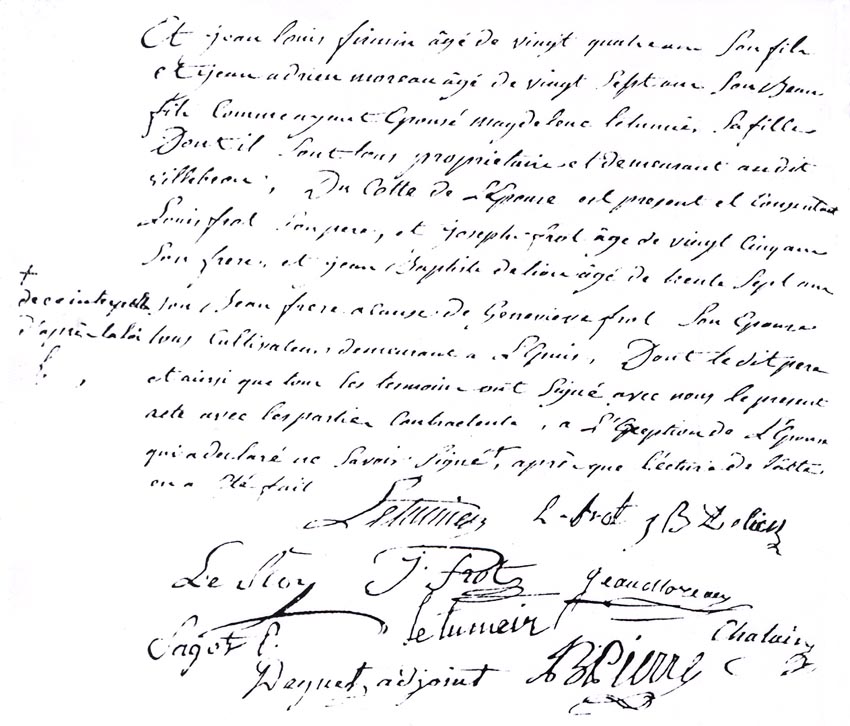 Et jean louis firmin âgé de vingt quatre ans Son fils
et jean adrien moreau âgé de vingt Sept ans Son Beau
fils Commençant Epousé magdeleine letumier, Sa fille
Dont il Sont tous proprietaire et demeurant audit
villebeon, Du Cotté de L'Epouse est present et Consentant
Louis frot Son pere, et joseph frot âgé de vingt Cinq ans
Son frere, et jean Baptiste delion âgé de trente Sept ans
Son Beau frere acause de Genevieve frot Son Epouse
tous Cultivateurs demeurant a Dont le dit pere
+
de ce interpellé
d'après la loi
et ainsi que tous les temoins ont Signé avec nous le present
acte avec les parties Contractente, a L'Exception de L'Epouse
qui a declaré ne Savoir Signé+, après que Lecture de
en a Eté fait
Letumier L. frot J B Delion
Le Roy J. frot jean Moreau
letumeir Chalain
Sagot E.
Deguet adjoint BPierre